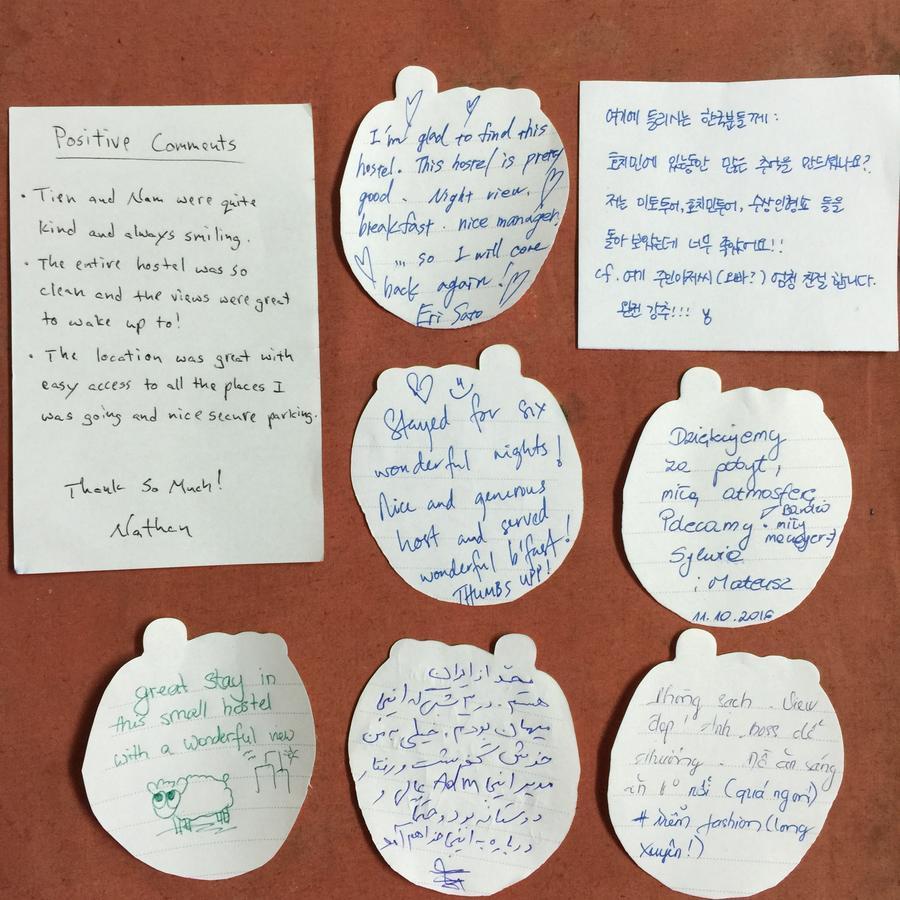 Positive Comments
• Tien and Nam were quite
kind and always smiling.
• The entire hostel was so
clean and the views were great
to wake up to!
• The location was great with
easy access to all the places I
was going and nice secure parking.
Thank So Much!
Nathan
I'm glad to find this
hostel. This hostel is pretty
good. Night view.
breakfast. nice manager.
... so I will come
back again!
Eri Sato
여기에 들리시는 한국분들께:
호치민에 있는동안 많은 추억을 만드셨나요?
저는 미토투어, 호치민투어, 수상인형쇼 등을
돌아 보았는데 너무 좋았어요!!
cf. 여기 주인아저씨(오빠?) 엄청 친절 합니다.
완전 강추!!!
Stayed for six
wonderful nights!
Nice and generous
host and served
wonderful b'fast!
THUMBS UPP!
Dziękujemy
za pobyt,
miłą atmosferę
Polecamy • Bardzo
miły
manager :)
Sylwia
i Mateusz
11.10.2016
great stay in
this small hostel
with a wonderful view
از ایران
هستم. در
میهمان بودم. خیلی به من
خوش گذشت و رفتار
مدیر اینجا Adm عالی و
دوستانه بود و حتماً
دوباره به اینجا خواهم آمد
Phòng sạch view
đẹp! Anh boss dễ
thương. Đồ ăn sáng
(quá ngon)
fashion (long
xuyên!)